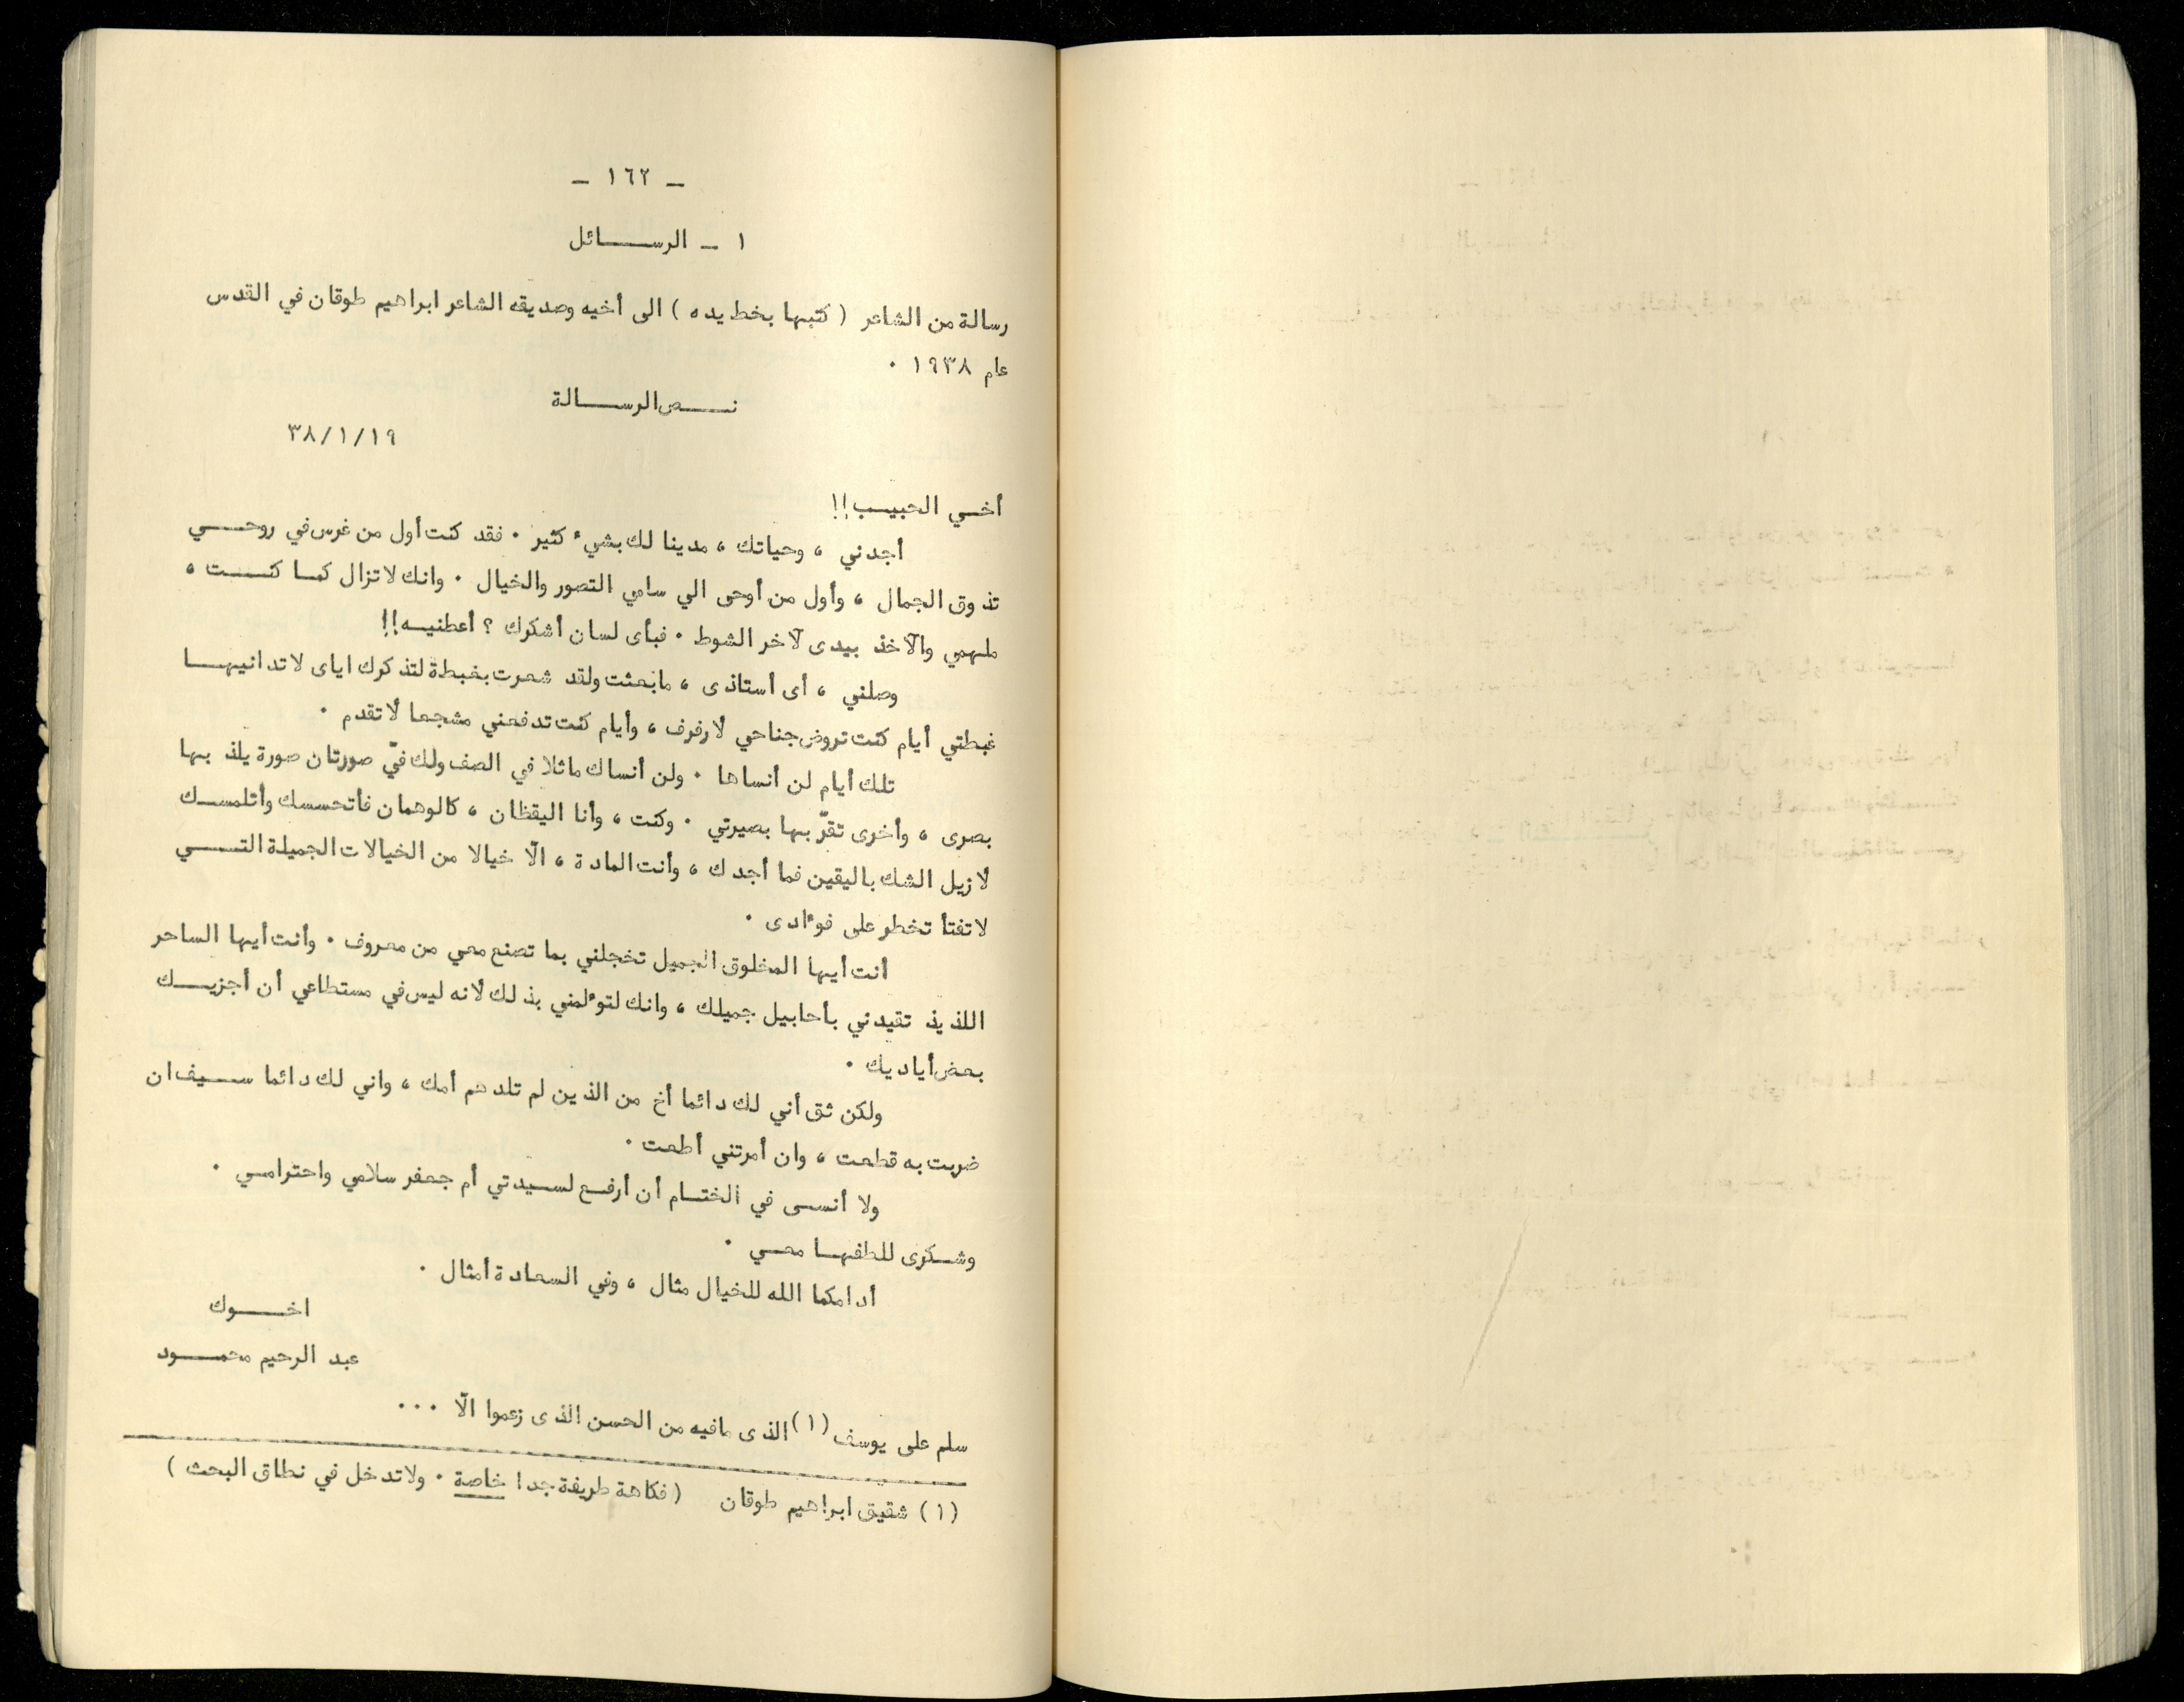 – ١٦٢ –
١ – الرسائل
رسالة من الشاعر ( كتبها بخط يده ) الى أخيه وصديقه الشاعر ابراهيم طوقان في القدس
عام ١٩٣٨ ٠
نص الرسالة
٣٨/١/١٩
أخي الحبيب!!
أجدني ، وحياتك ، مدينا لك بشيء كثير ٠ فقد كنت أول من غرس في روحي
تذوق الجمال ، وأول من أوحى الي سامي التصور والخيال ٠ وانك لاتزال كما كنت ،
ملهمي والآخذ بيدى لآخر الشوط ٠ فبأى لسان أشكرك ؟ أعطنيه!!
وصلني ، أى أستاذى ، مابعثت ولقد شعرت بغبطة لتذكرك اياى لاتدانيها
غبطتي أيام كنت تروض جناحي لأرفرف ، وأيام كنت تدفعني مشجعا لأتقدم ٠
تلك أيام لن أنساها ٠ ولن أنساك ماثلا في الصف ولك فيّ صورتان صورة يلذ بها
بصرى ، وأخرى تقرّ بها بصيرتي ٠ وكنت ، وأنا اليقظان ، كالوهمان فأتحسسك وأتلمسك
لأزيل الشك باليقين فما أجدك ، وأنت المادة ، الّا خيالا من الخيالات الجميلة التي
لاتفتأ تخطر على فوءادى ٠
أنت أيها المخلوق الجميل تخجلني بما تصنع معي من معروف ٠ وأنت أيها الساحر
اللذيذ تقيدني بأحابيل جميلك ، وانك لتوءلمني بذلك لأنه ليس في مستطاعي أن أجزيك
بعض أياديك ٠
ولكن ثق أني لك دائما أخ من الذين لم تلدهم أمك ، واني لك دائما سيف ان
ضربت به قطعت ، وان أمرتني أطعت ٠
ولا أنسى في الختام أن أرفع لسيدتي أم جعفر سلامي واحترامي ٠
وشكرى للطفها معي ٠
أدامكما الله للخيال مثال ، وفي السعادة أمثال ٠
اخوك
عبد الرحيم محمود
سلم على يوسف (١) الذى مافيه من الحسن الذى زعموا الّا ٠٠٠
(١) شقيق ابراهيم طوقان ( فكاهة طريفة جدا خاصة ٠ ولاتدخل في نطاق البحث )